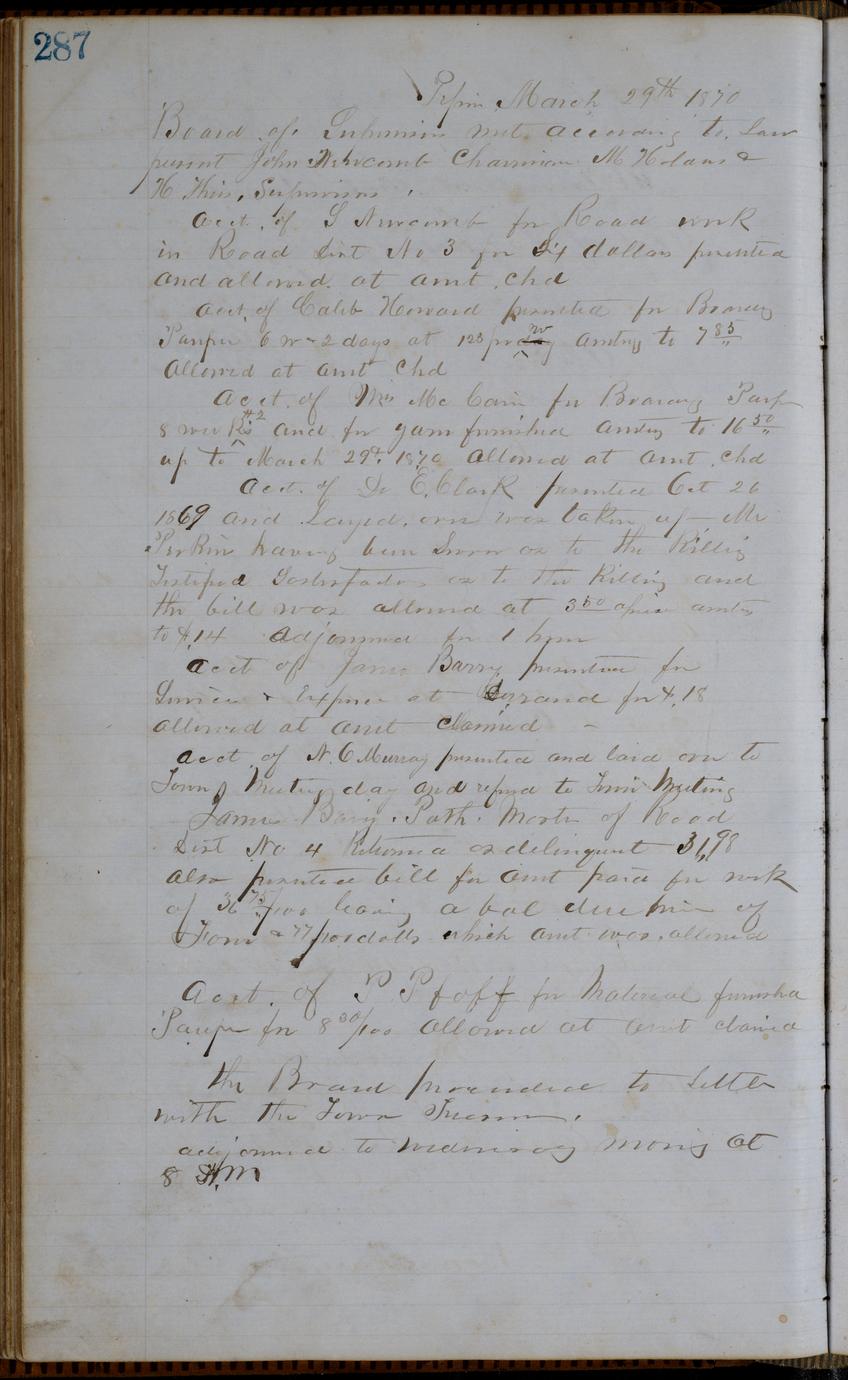 287
Pepin March 29th 1870
Board of Supervisors met according to Law
present John Newcomb Chairman M Holans &
H Thies, Supervisors
acct. of S Newcomb for Road work
in Road Dist No 3 for 24 dollars presented
and allowed at amt. chd
acct. of Caleb Howard presented for Boarding
Pauper 6 w - 2 days at 125 pr w amtng to 7 85
allowed at amt chd
acct. of Mrs Mc Cain for Boarding Paup
8 weeks #2 and for yarn furnished amtng to 16 50
up to March 29th 1870 allowed at amt. chd
acct. of De E. Clark presented Oct 26
1869 and Layed over was taken up - Mr
Perkin having been Sworn as to the Killing
Testified as to the Killing and
the bill was allowed at 3 50 apiece amtng
to $.14 adjourned for 1 hour
acct of James Barry presented for
Services & Expense at Durand for $.18
allowed at amt claimed -
acct. of N. C Murray presented and laid over to
Town Meeting day and referred to Town Meeting
James Barry Path. Master of Road
Dist No 4 Returned as delinquent 31,98
also presented bill for amt paid for work
of 36 75/100 leaving a bal due him of
Four & 77/100 dolls which amt was allowed
Acct. of P Pfoff for Material furnished
Pauper for 8 30/100 allowed at amt claimed
the Board proceeded to Settle
with the Town Treasurer.
adjourned to wednesday morning at
8 A.M